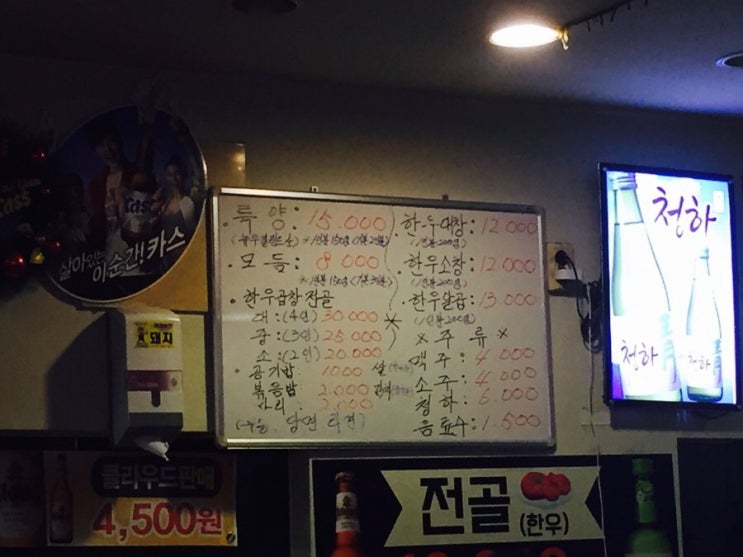 Cass
살아있는
이순간! 카스
돼지
특 양: 15.000
모 듬: 8.000
한우곱창 전골
대: (4인) 30.000
중: (3인) 25.000
소: (2인) 20.000
공기밥 1000 쌀
볶음밥 2.000
사리 2.000
당면
한우대창: 12.000
(1인분 200g)
한우소창: 12.000
(1인분 200g)
한우알곱: 13.000
(1인분 200g)
* 주 류 *
맥주: 4.000
소주: 4.000
청하: 6.000
음료수: 1.500
청하
청하
청하
클라우드판매
4,500원
전골
(한우)